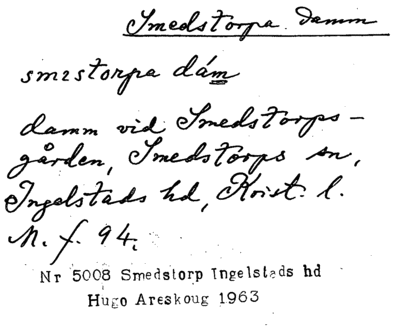 Smedstorpa damm
smestorpa dám
damm vid Smedstorps-
gården, Smedstorps sn,
Ingelstads hd, Krist. l.
M. f. 94.
Nr 5008 Smedstorp Ingelstads hd
Hugo Areskoug 1963